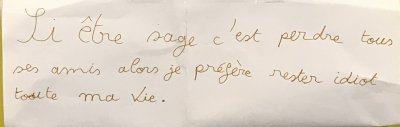 Si être sage c'est perdre tous
ses amis alors je préfère rester idiot
toute ma vie.